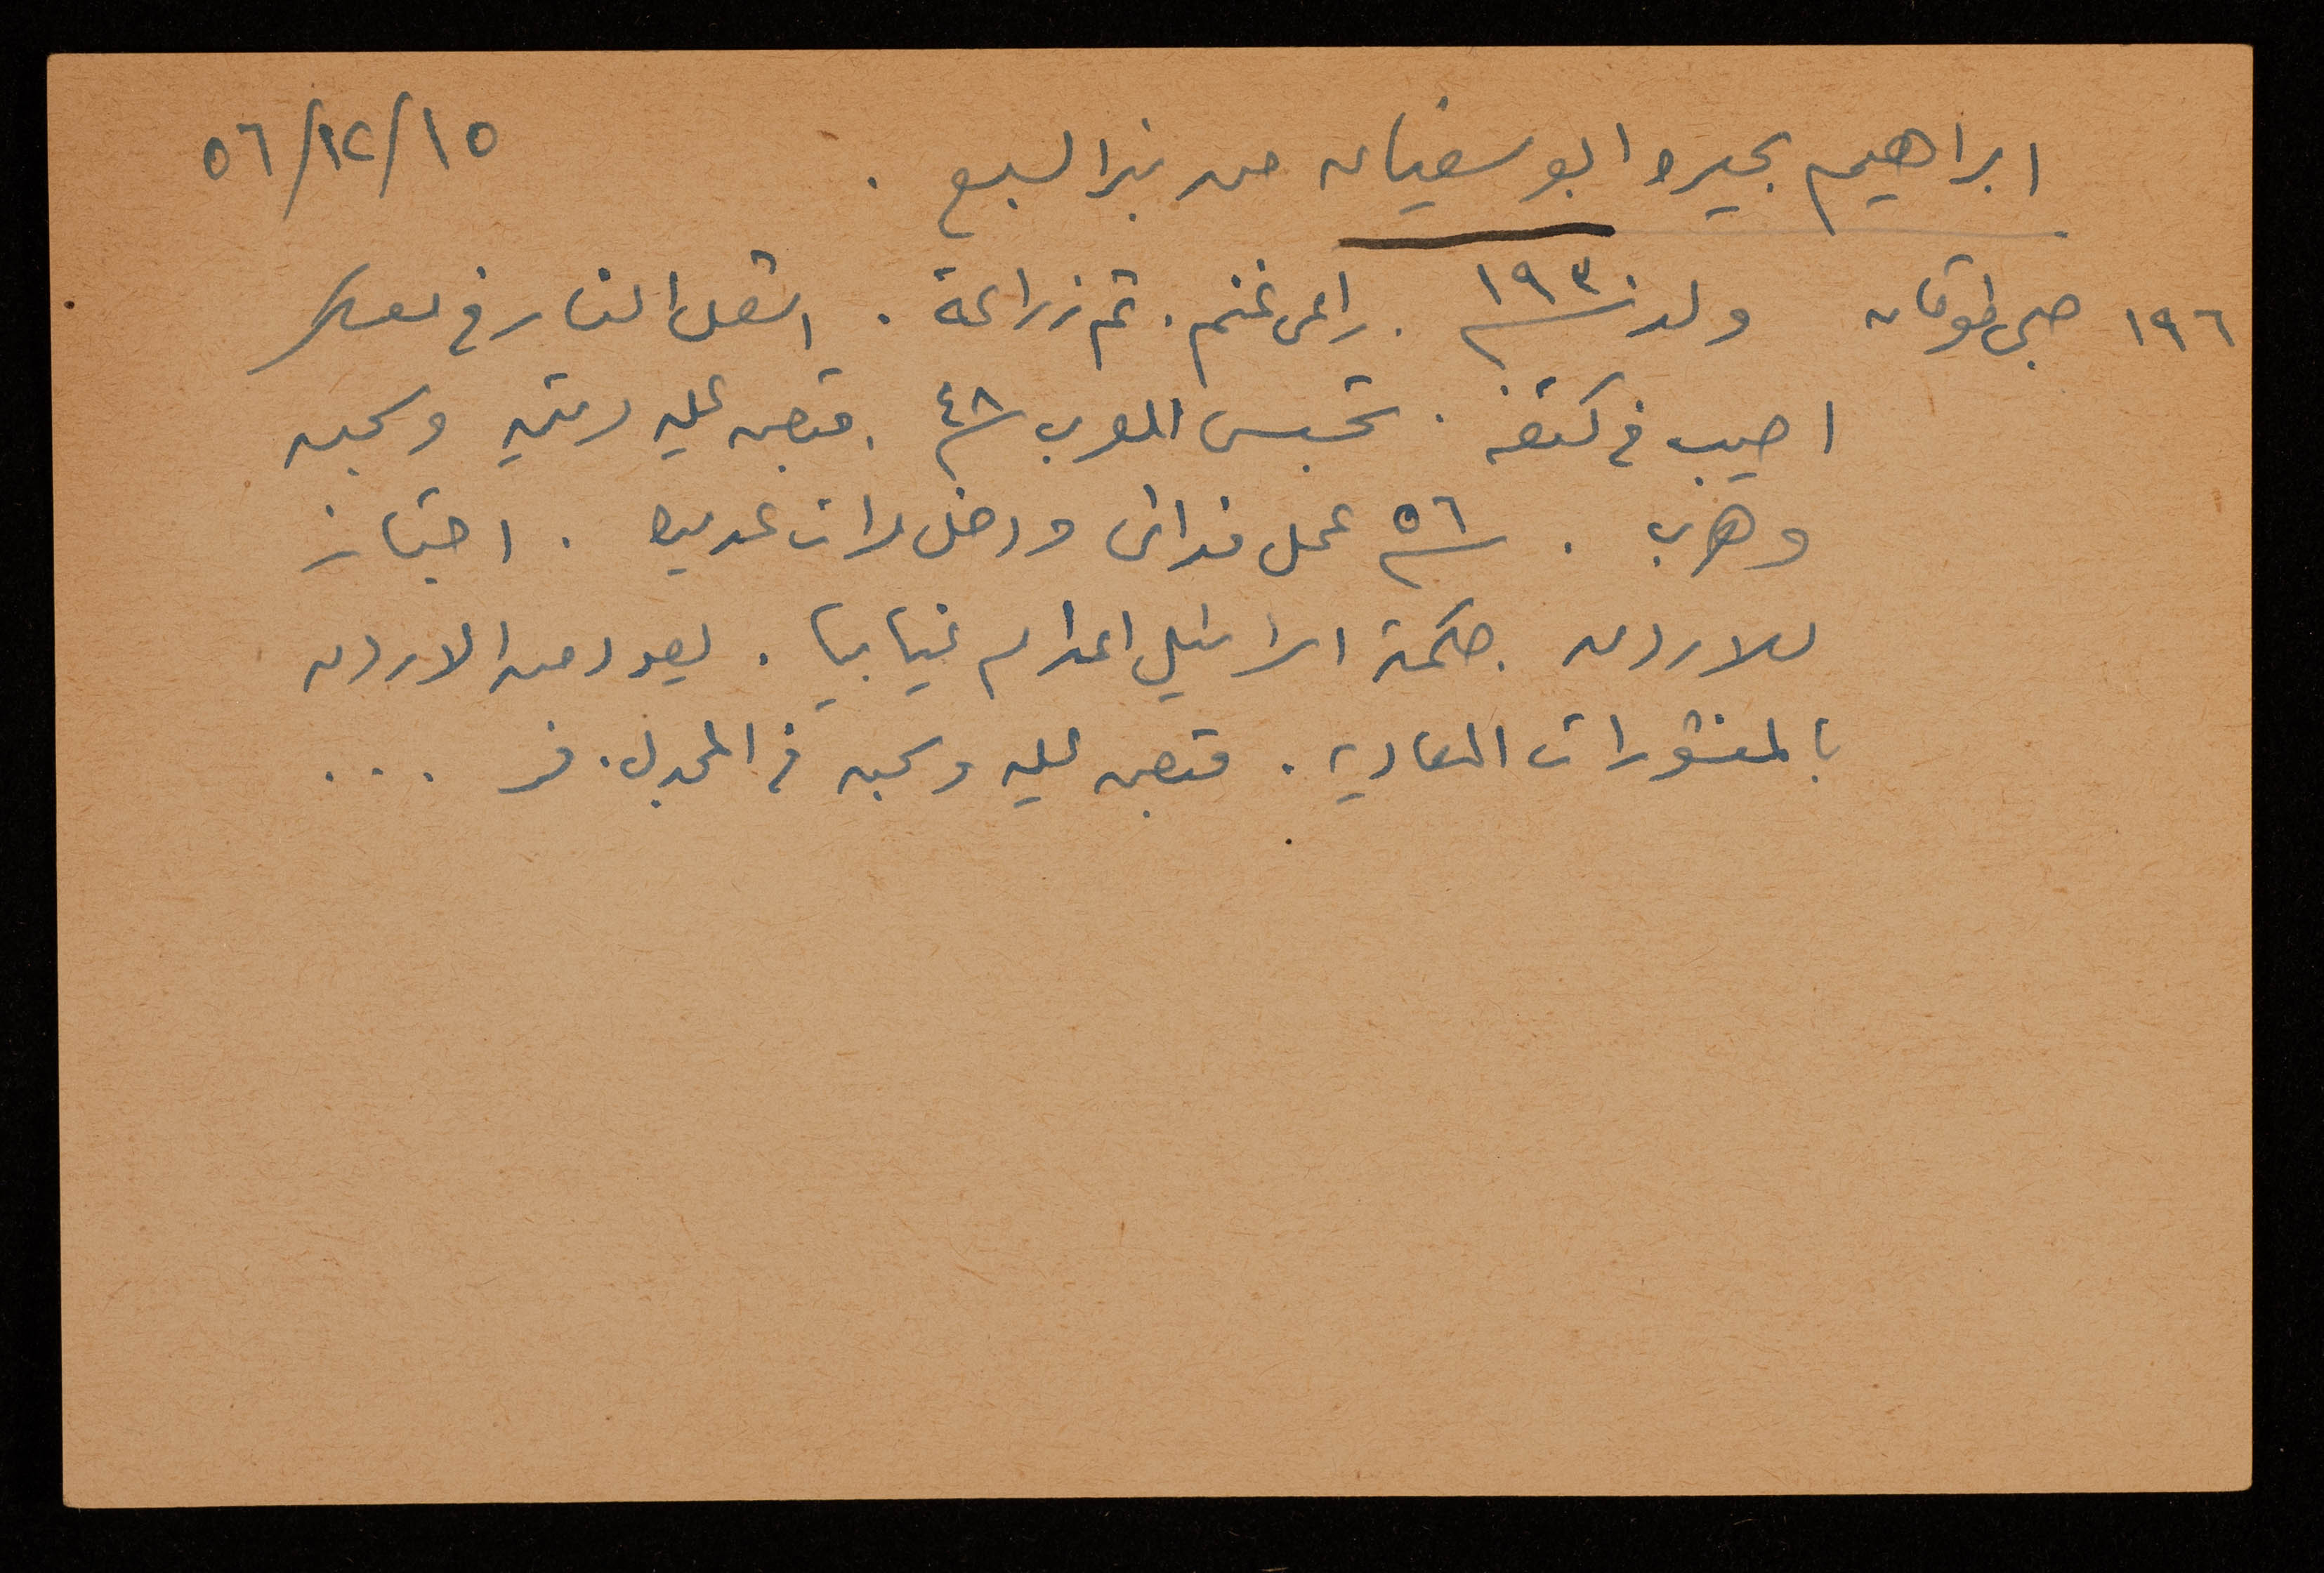 ابراهيم بحيرد ابو سفيان من بئر السبع . ٥٦/١٢/١٥
١٩٦ صبحي طوقان ولد سنة ١٩٣٠ . راعى غنم . ثم زراعة . اشعل النار في معسكر
اصيب في كتفه . تجسس للعرب سنة ٤٨ . قبض عليه مرتين وسجن
وهرب . سنة ٥٦ عمل فدائى ودخل مرات عديده . اجتاز
للاردن . حكمته اسرائيل اعدام غيابيا . يعود من الاردن
بالمنشورات المعاديه . قبض عليه وسجن في المجدل . فر ...